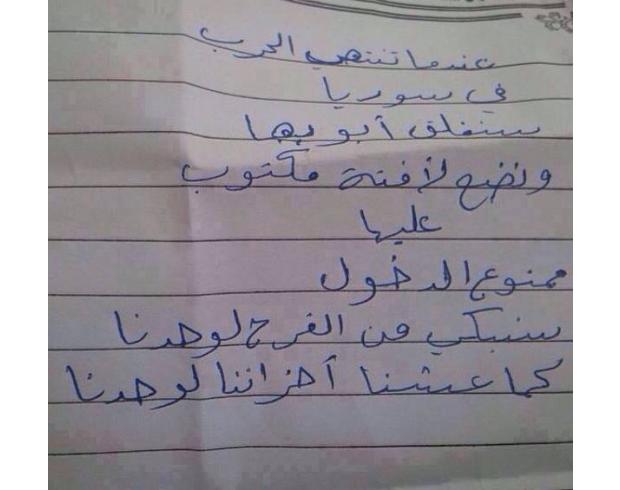 عندما تنتهي الحرب
في سوريا
سنغلق أبوبها
ونضع لأفتة مكتوب
عليها
ممنوع الدخول
سنبكي من الفرح لوحدنا
كما عشنا أحزاننا لوحدنا